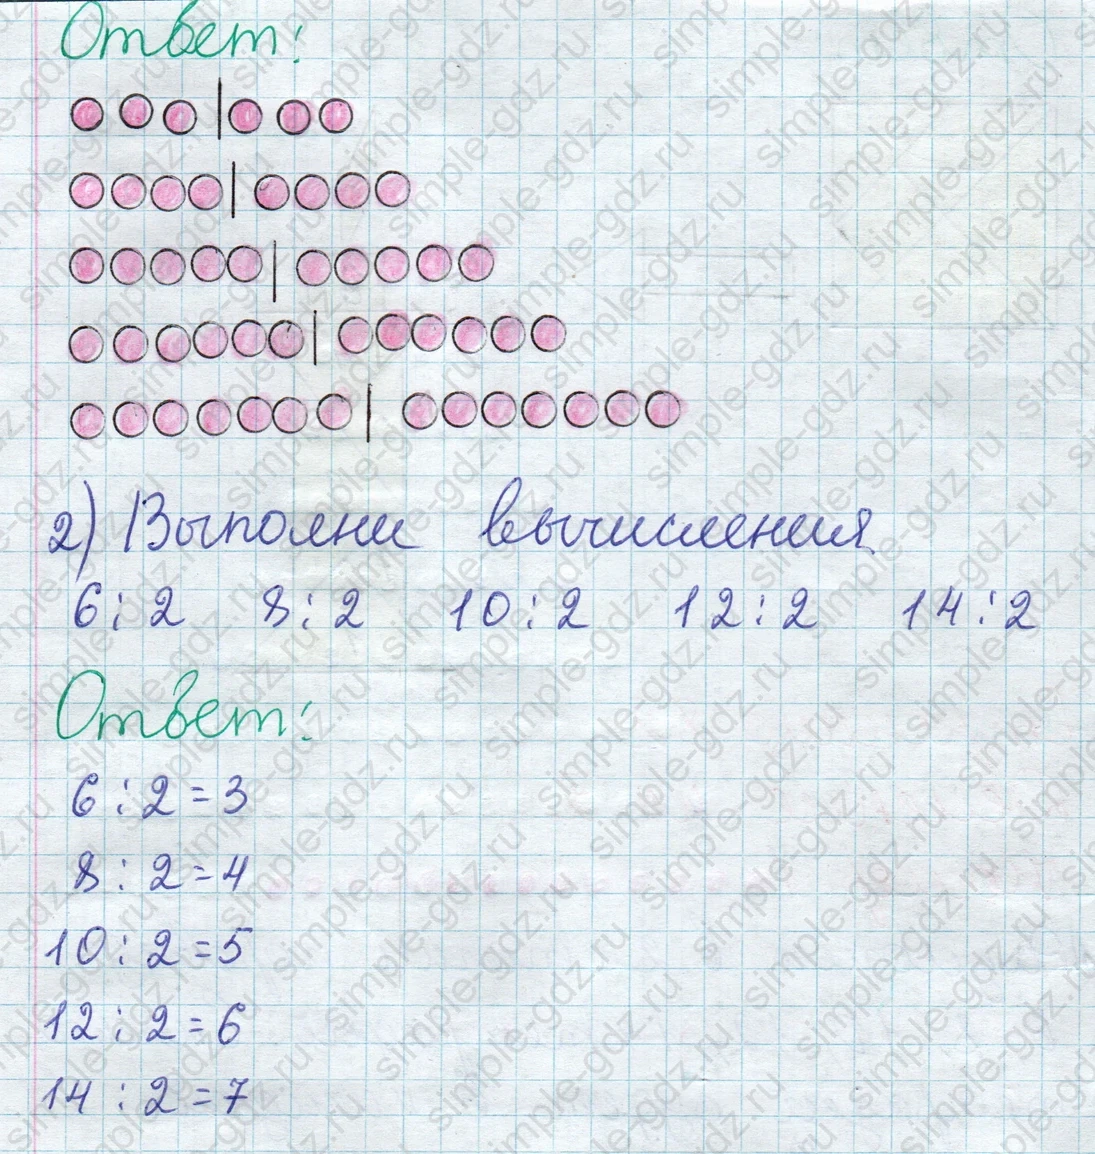 Ответ:
2) Выполни вычисления
6 : 2 8 : 2 10 : 2 12 : 2 14 : 2
Ответ:
6 : 2 = 3
8 : 2 = 4
10 : 2 = 5
12 : 2 = 6
14 : 2 = 7
simple-gdz.ru